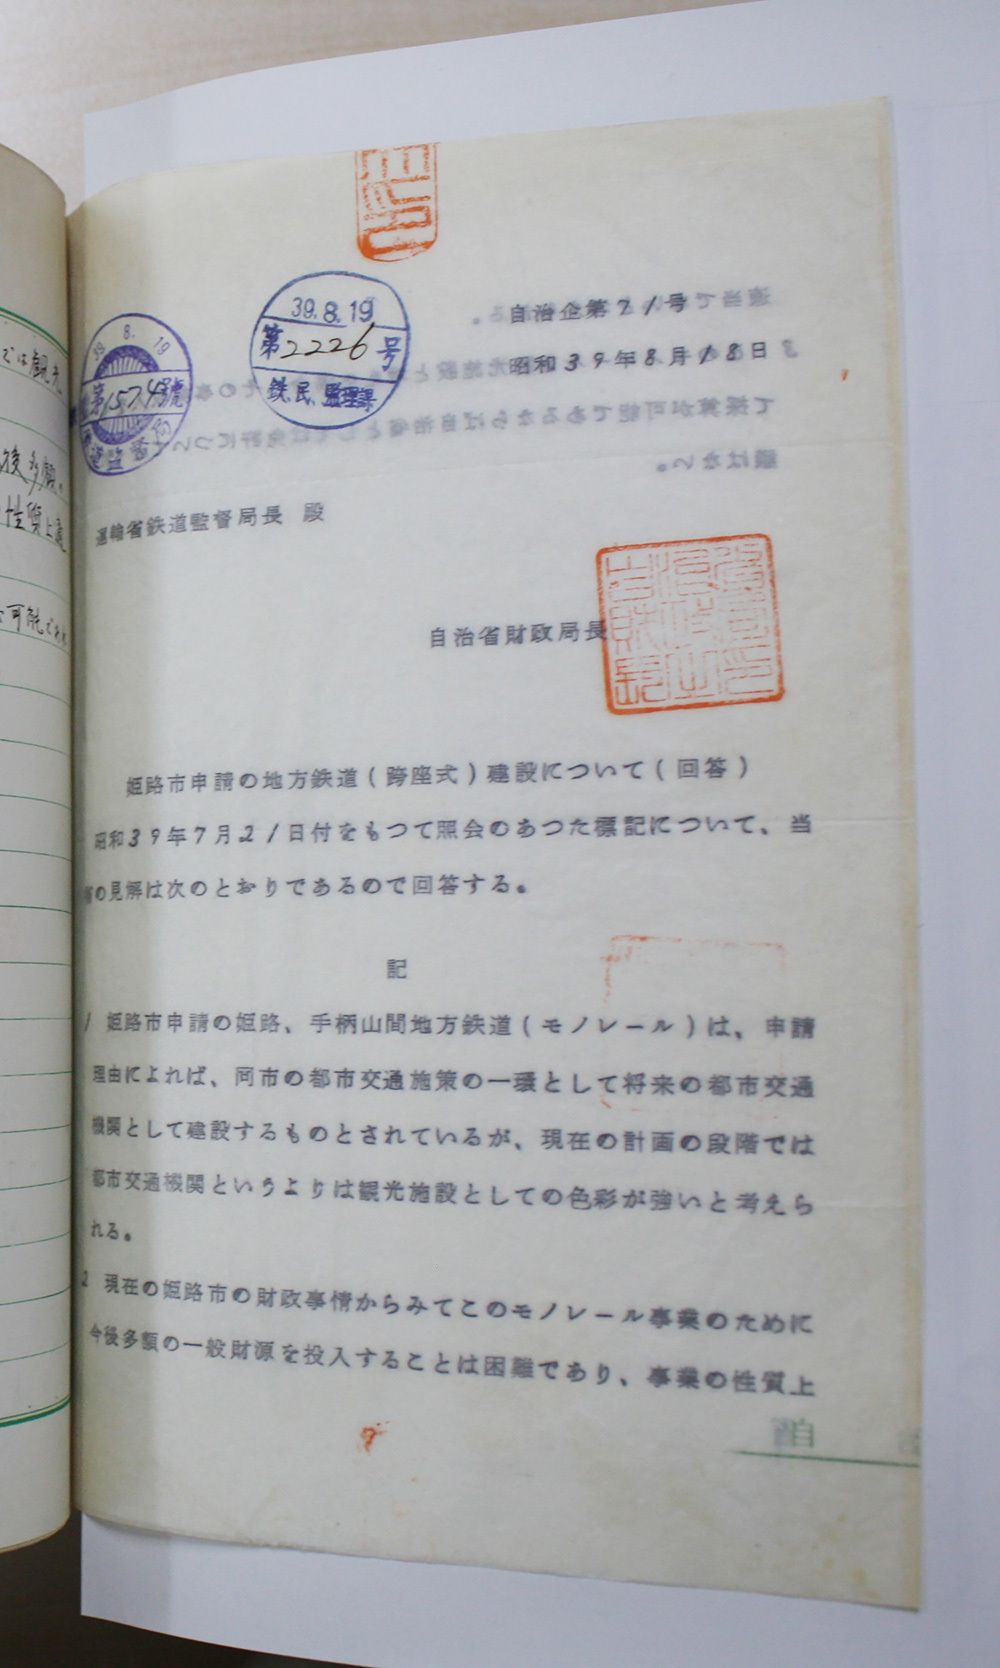 39.8.19
第2226号
鉄.民.監理課
39 8. 19
第1574号
道監督局
自治企第71号
昭和39年8月18日
運輸省鉄道監督局長 殿
自治省財政局長
姫路市申請の地方鉄道(跨座式)建設について(回答)
昭和39年7月21日付をもつて照会のあつた標記について、当
省の見解は次のとおりであるので回答する。
記
1 姫路市申請の姫路、手柄山間地方鉄道(モノレール)は、申請
理由によれば、同市の都市交通施策の一環として将来の都市交通
機関として建設するものとされているが、現在の計画の段階では
都市交通機関というよりは観光施設としての色彩が強いと考えら
れる。
2 現在の姫路市の財政事情からみてこのモノレール事業のために
今後多額の一般財源を投入することは困難であり、事業の性質上
後多額の
性質上
可能であれ